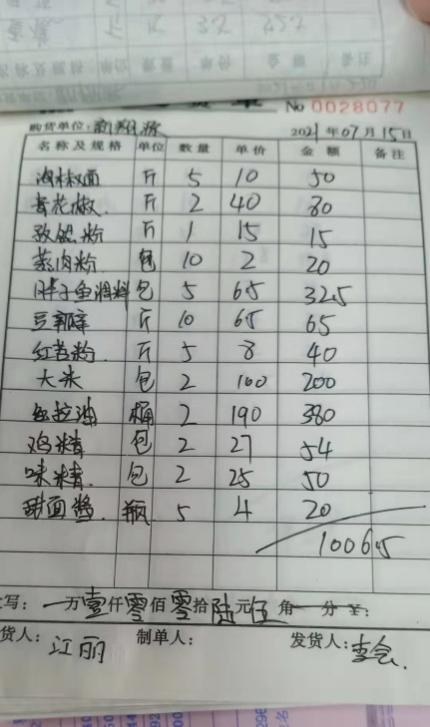 No 0028077
购货单位: 2021年07月15日
名称及规格 单位 数量 单价 金额 备注
油辣面 斤 5 10 50
青花椒 斤 2 40 80
孜然粉 斤 1 15 15
蒸肉粉 包 10 2 20
胖子鱼调料 包 5 65 325
豆瓣 斤 10 65 65
红苕粉 斤 5 8 40
大米 包 2 100 200
桶 2 190 380
鸡精 包 2 27 54
味精 包 2 25 50
甜面酱 瓶 5 4 20
10065
写: 万壹仟零佰零拾陆元伍角 分 ¥:
货人: 江丽 制单人: 发货人: